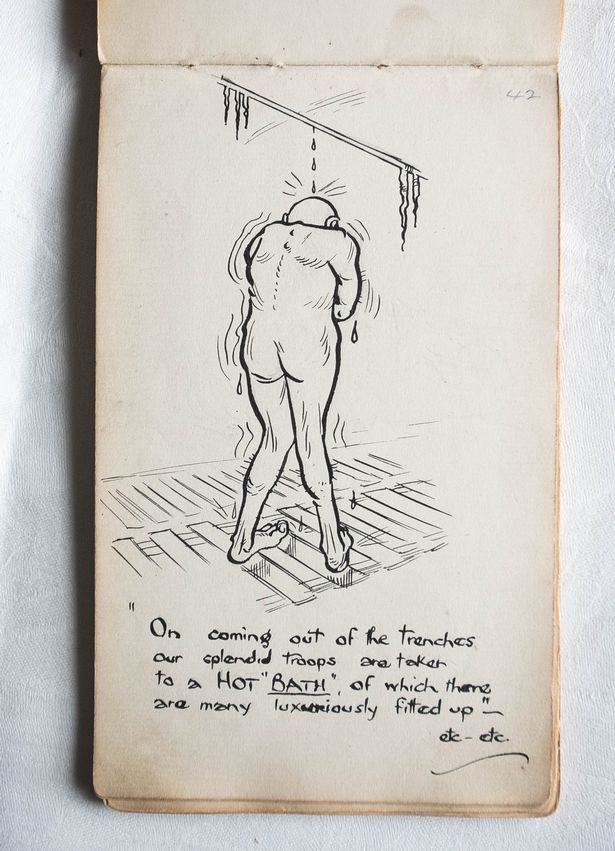 42
"On coming out of the trenches
our splendid troops are taken
to a HOT "BATH", of which there
are many luxuriously fitted up"—
etc – etc.